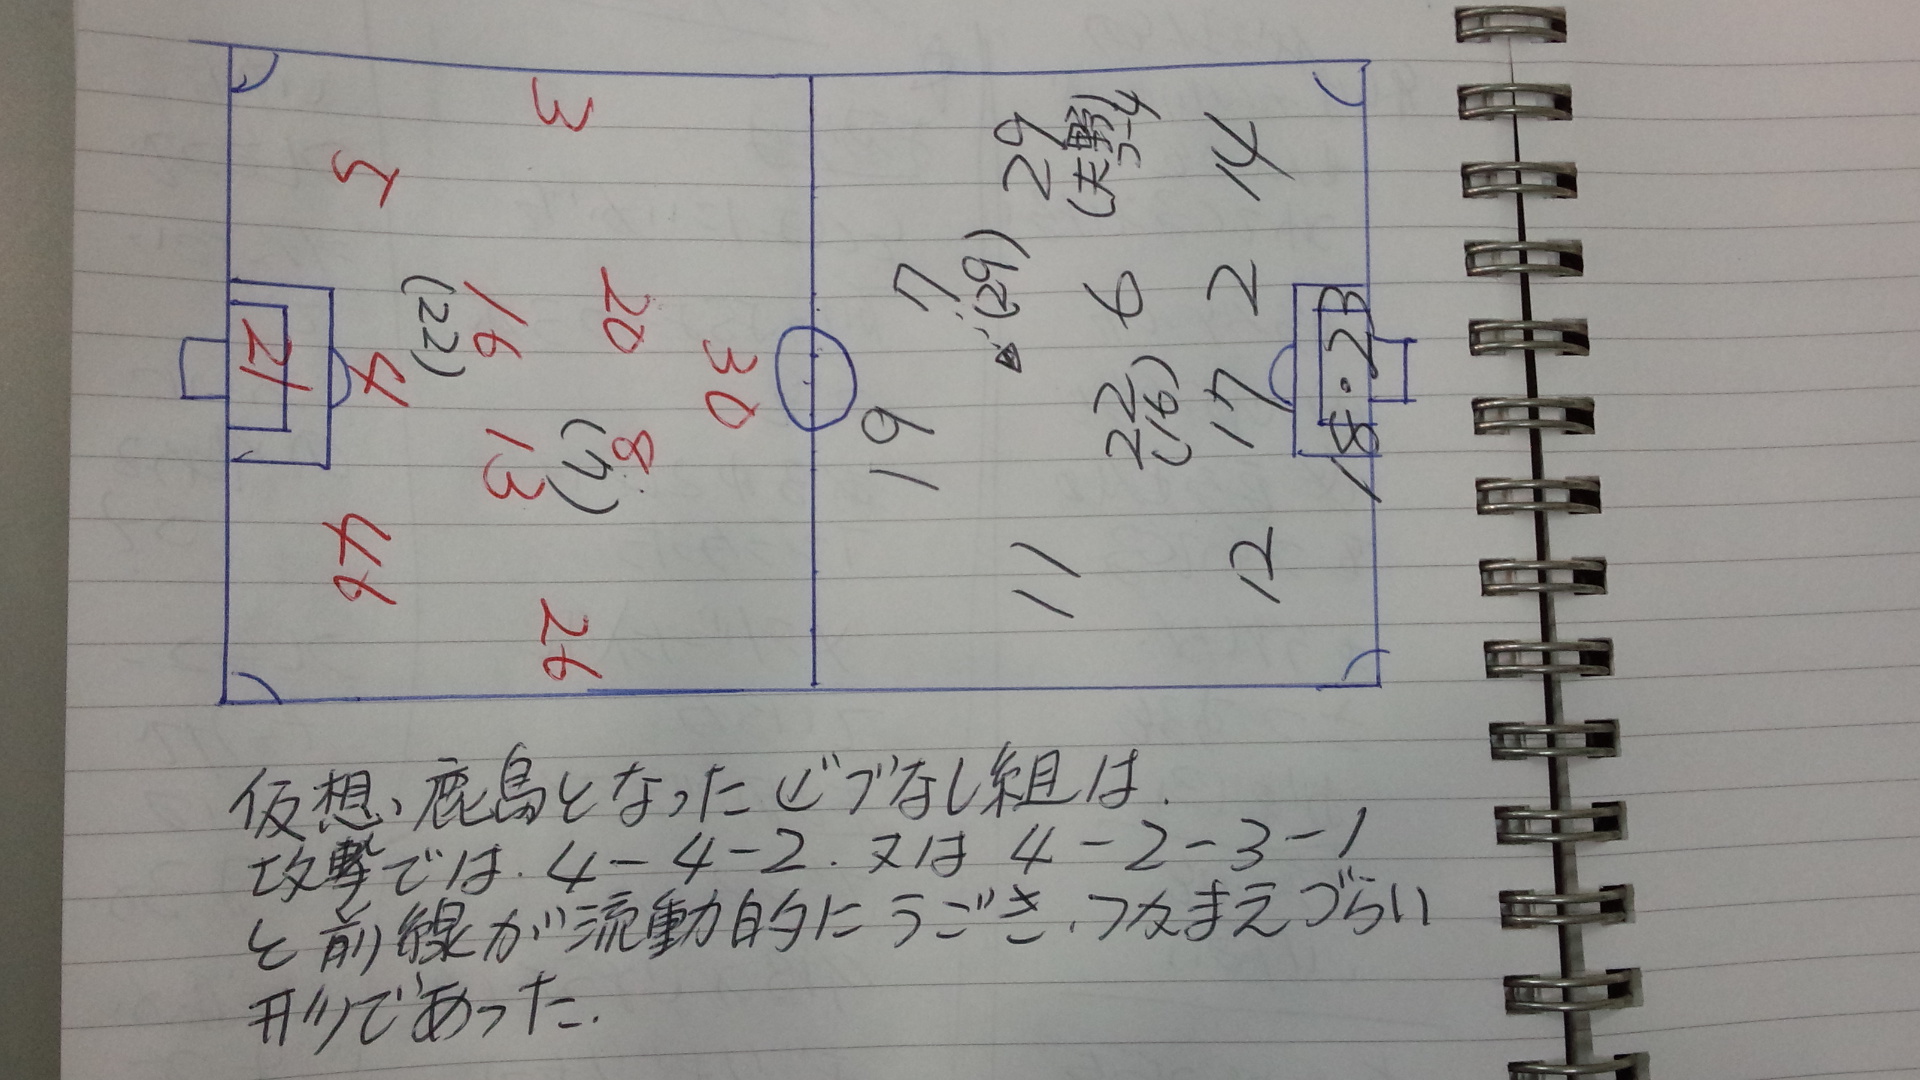 3
5
46
26
21
4
16
(22)
13
20
8
(7)
30
29
(天野)
コーチ
14
7
(29)
6
2
19
22
(16)
17
18・23
11
12
仮想、鹿島となったビブなし組は、
攻撃では、4-4-2、又は 4-2-3-1
と前線が流動的にうごき、つかまえづらい
形であった。